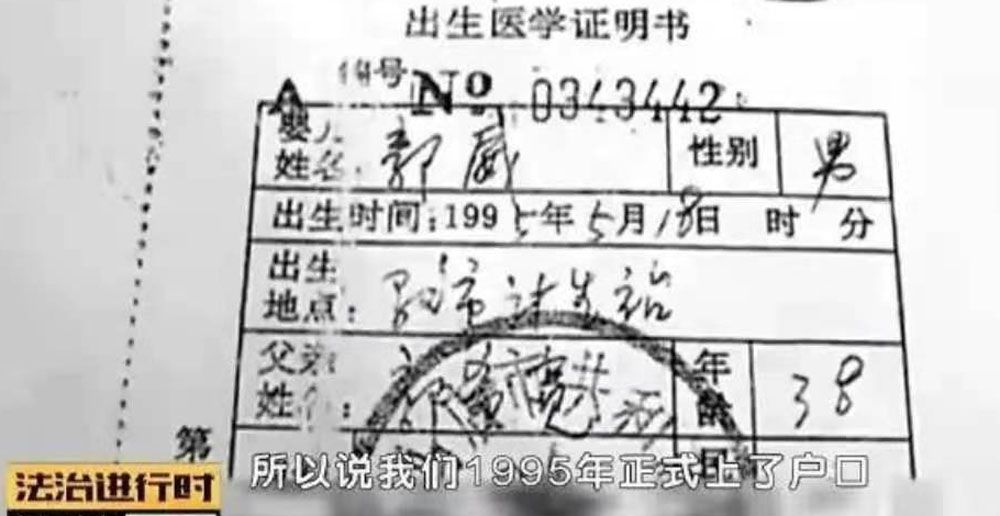 出生医学证明书
号 No 0343442
婴儿
姓名: 郭威 性别 男
出生时间:1995年5月18日 时 分
出生
地点: 计生站
父亲
姓名: 年龄 38
第
法治进行时
所以说我们1995年正式上了户口